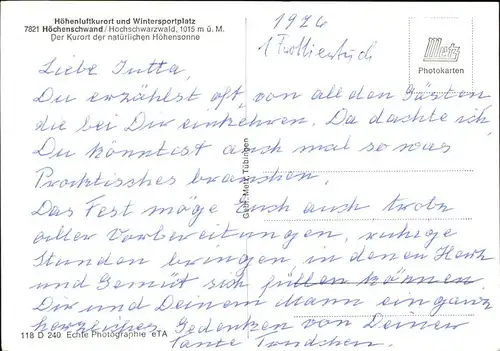 Höhenluftkurort und Wintersportplatz
7821 Höchenschwand/Hochschwarzwald, 1015 m ü. M.
Der Kurort der natürlichen Höhensonne
1976
1
Metz
Photokarten
Liebe Jutta,
Du erzählst oft, von all den Gästen
die bei Dir einkehren. Da dachte ich
Du könntest auch mal so was
Praktisches brauchen.
Das Fest möge Euch auch trotz
aller Vorbereitungen, ruhige
Stunden bringen, in denen Herz
und Gemüt sich füllen können.
Dir und Deinem Mann ein ganz
herzliches Gedenken von Deiner
Tante Trudchen.
Gebr. Metz, Tübingen
118 D 240 Echte Photographie eTA